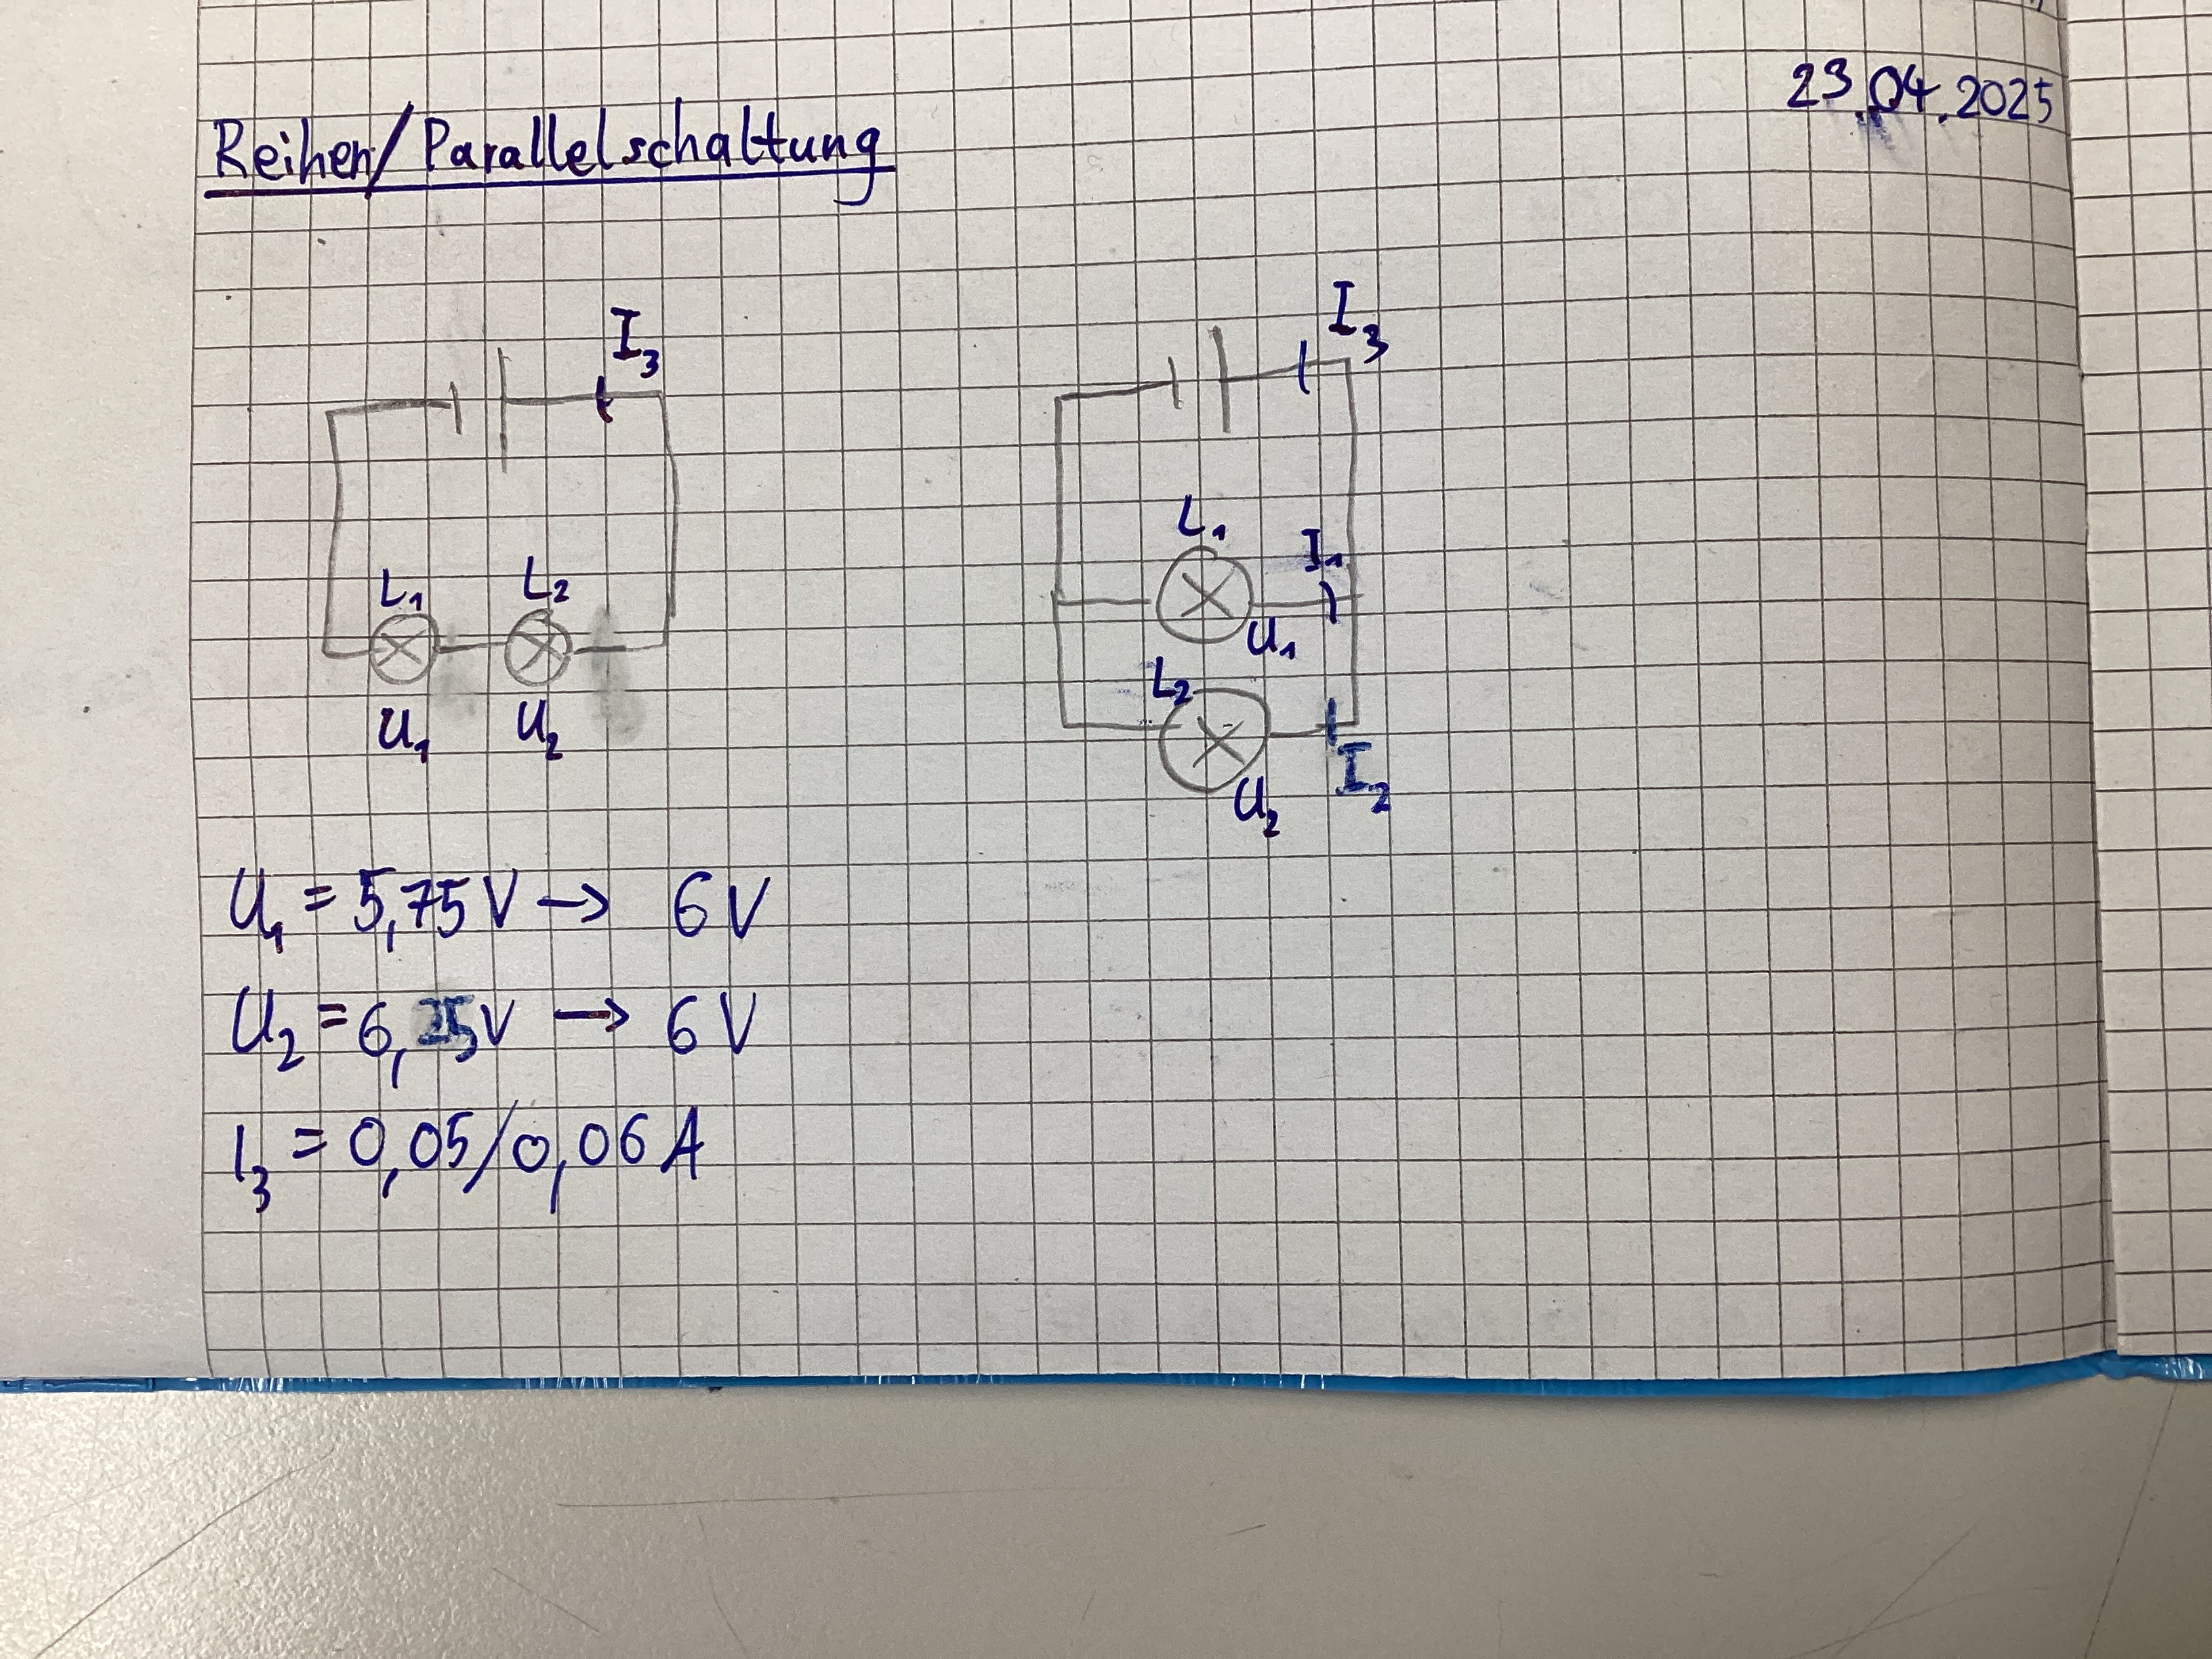 23.04.2025
Reihen/Parallelschaltung
I₃
L₁ L₂
U₁ U₂
I₃
L₁
I₁
U₁
L₂
I₂
U₂
U₁ = 5,75 V → 6 V
U₂ = 6,25 V → 6 V
I₃ = 0,05/0,06 A